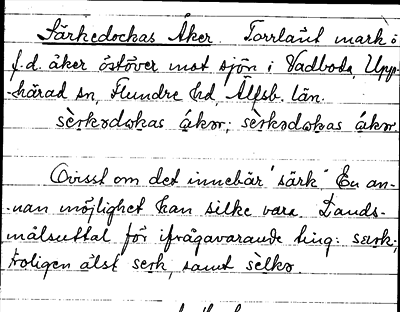 Särkedockas Åker. Torrlänt mark o
f.d. åker öster mot sjön i Vadboda, Upp-
härad sn, Flundre hd, Älfsb. län.
sèrkədωkas åkər; sèrkədωkas åkər.
Ovisst om det innebär 'särk' En an-
-nan möjlighet kan silke vara. Lands-
målsuttal för ifrågavarande ting: særk;
troligen älst serk, samt sèlkə.